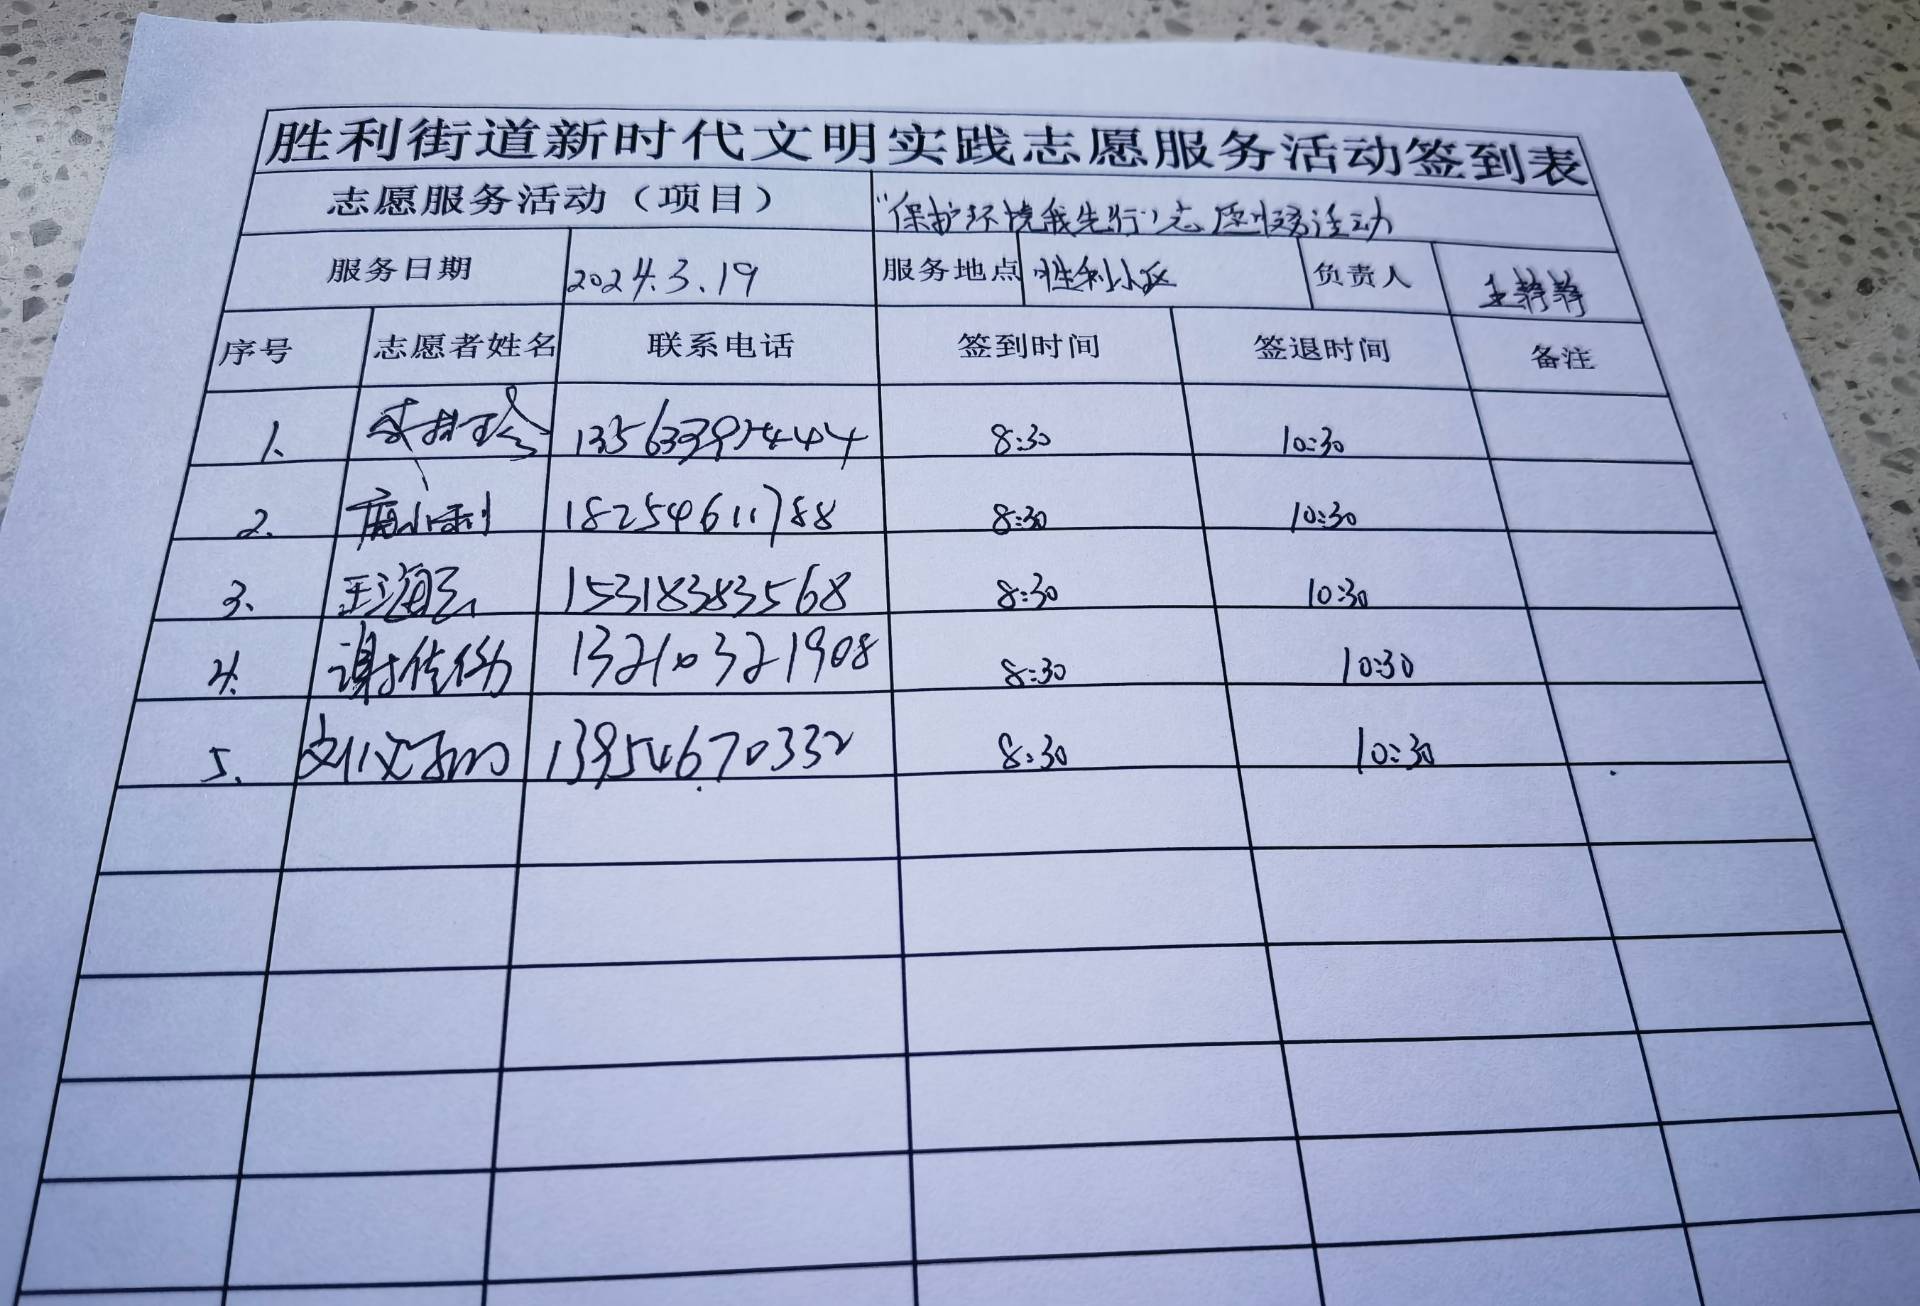 胜利街道新时代文明实践志愿服务活动签到表
志愿服务活动（项目） "保护环境我先行"志愿服务活动
服务日期 2024.3.19 服务地点 胜利小区 负责人 王静静
序号 志愿者姓名 联系电话 签到时间 签退时间 备注
1. 8:30 10:30
2. 18254611788 8:30 10:30
3. 王海云 15318383568 8:30 10:30
4. 13210321908 8:30 10:30
5. 13954670332 8:30 10:30